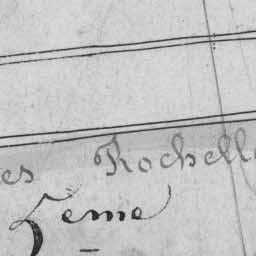 es Rochelle
Zeme